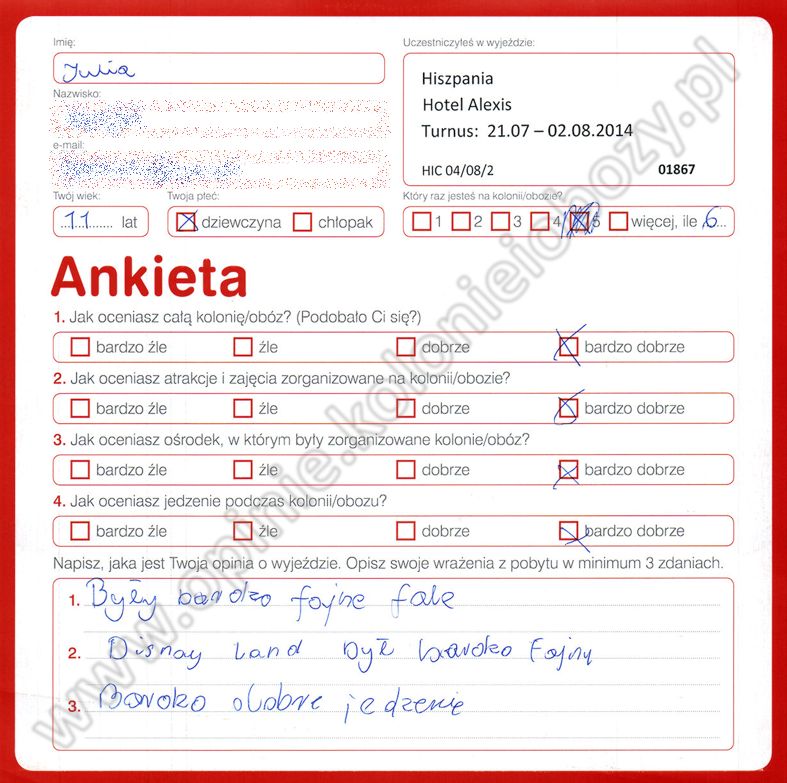 Imię:
Uczestniczyłeś w wyjeździe:
Julia
Nazwisko:
Hiszpania
Hotel Alexis
Turnus: 21.07 – 02.08.2014
e-mail:
HIC 04/08/2
01867
Twój wiek:
Twoja płeć:
Który raz jesteś na kolonii/obozie?
11 lat
dziewczyna
chłopak
1 2 3 4 5 więcej, ile 6
Ankieta
1. Jak oceniasz całą kolonię/obóz? (Podobało Ci się?)
bardzo źle źle dobrze bardzo dobrze
2. Jak oceniasz atrakcje i zajęcia zorganizowane na kolonii/obozie?
bardzo źle źle dobrze bardzo dobrze
3. Jak oceniasz ośrodek, w którym były zorganizowane kolonie/obóz?
bardzo źle źle dobrze bardzo dobrze
4. Jak oceniasz jedzenie podczas kolonii/obozu?
bardzo źle źle dobrze bardzo dobrze
Napisz, jaka jest Twoja opinia o wyjeździe. Opisz swoje wrażenia z pobytu w minimum 3 zdaniach.
1. Były bardzo fajne fale
2. Disnay Land był bardzo Fajny
3. Bardzo dobre jedzenie
www.opinie.kolonieiobozy.pl